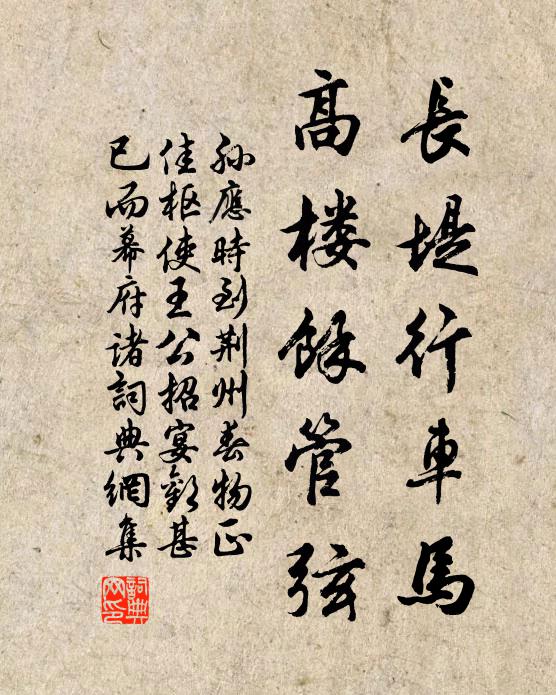 長堤行車馬
高楼餘管弦
孙應時到荆州春物正
佳枢使王公招宴歡甚
已而幕府诸詞典網集
詞典网印